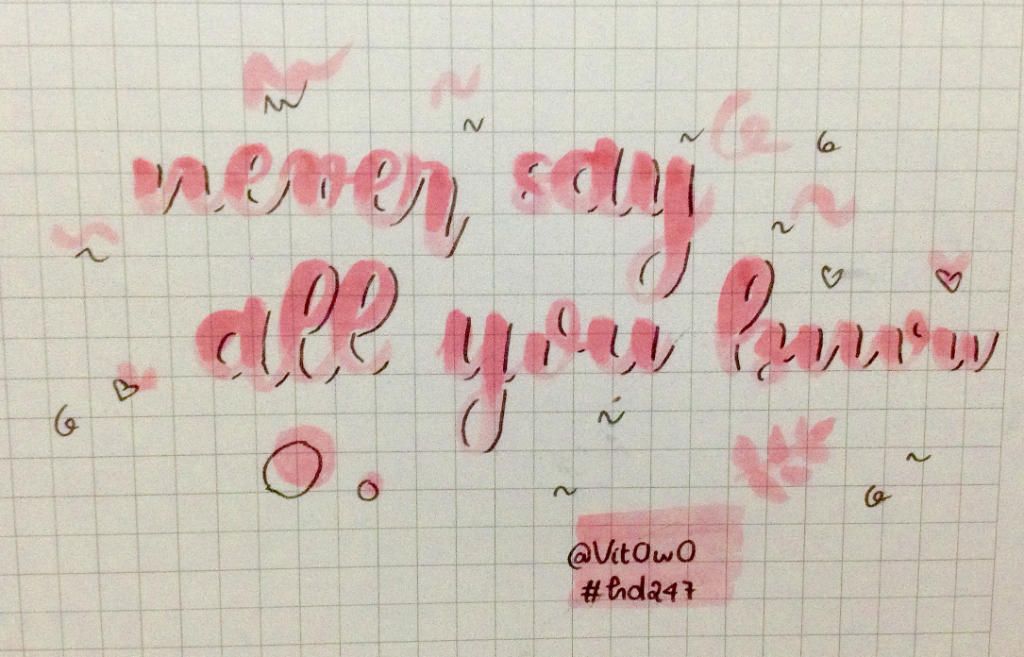 never say
all you know
@Vit0w0
#hd247